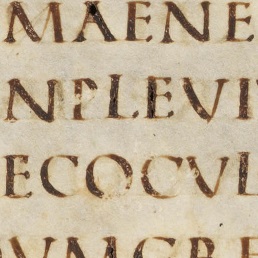 MAENE
NPLEVI
ECOCVL
VMCRE